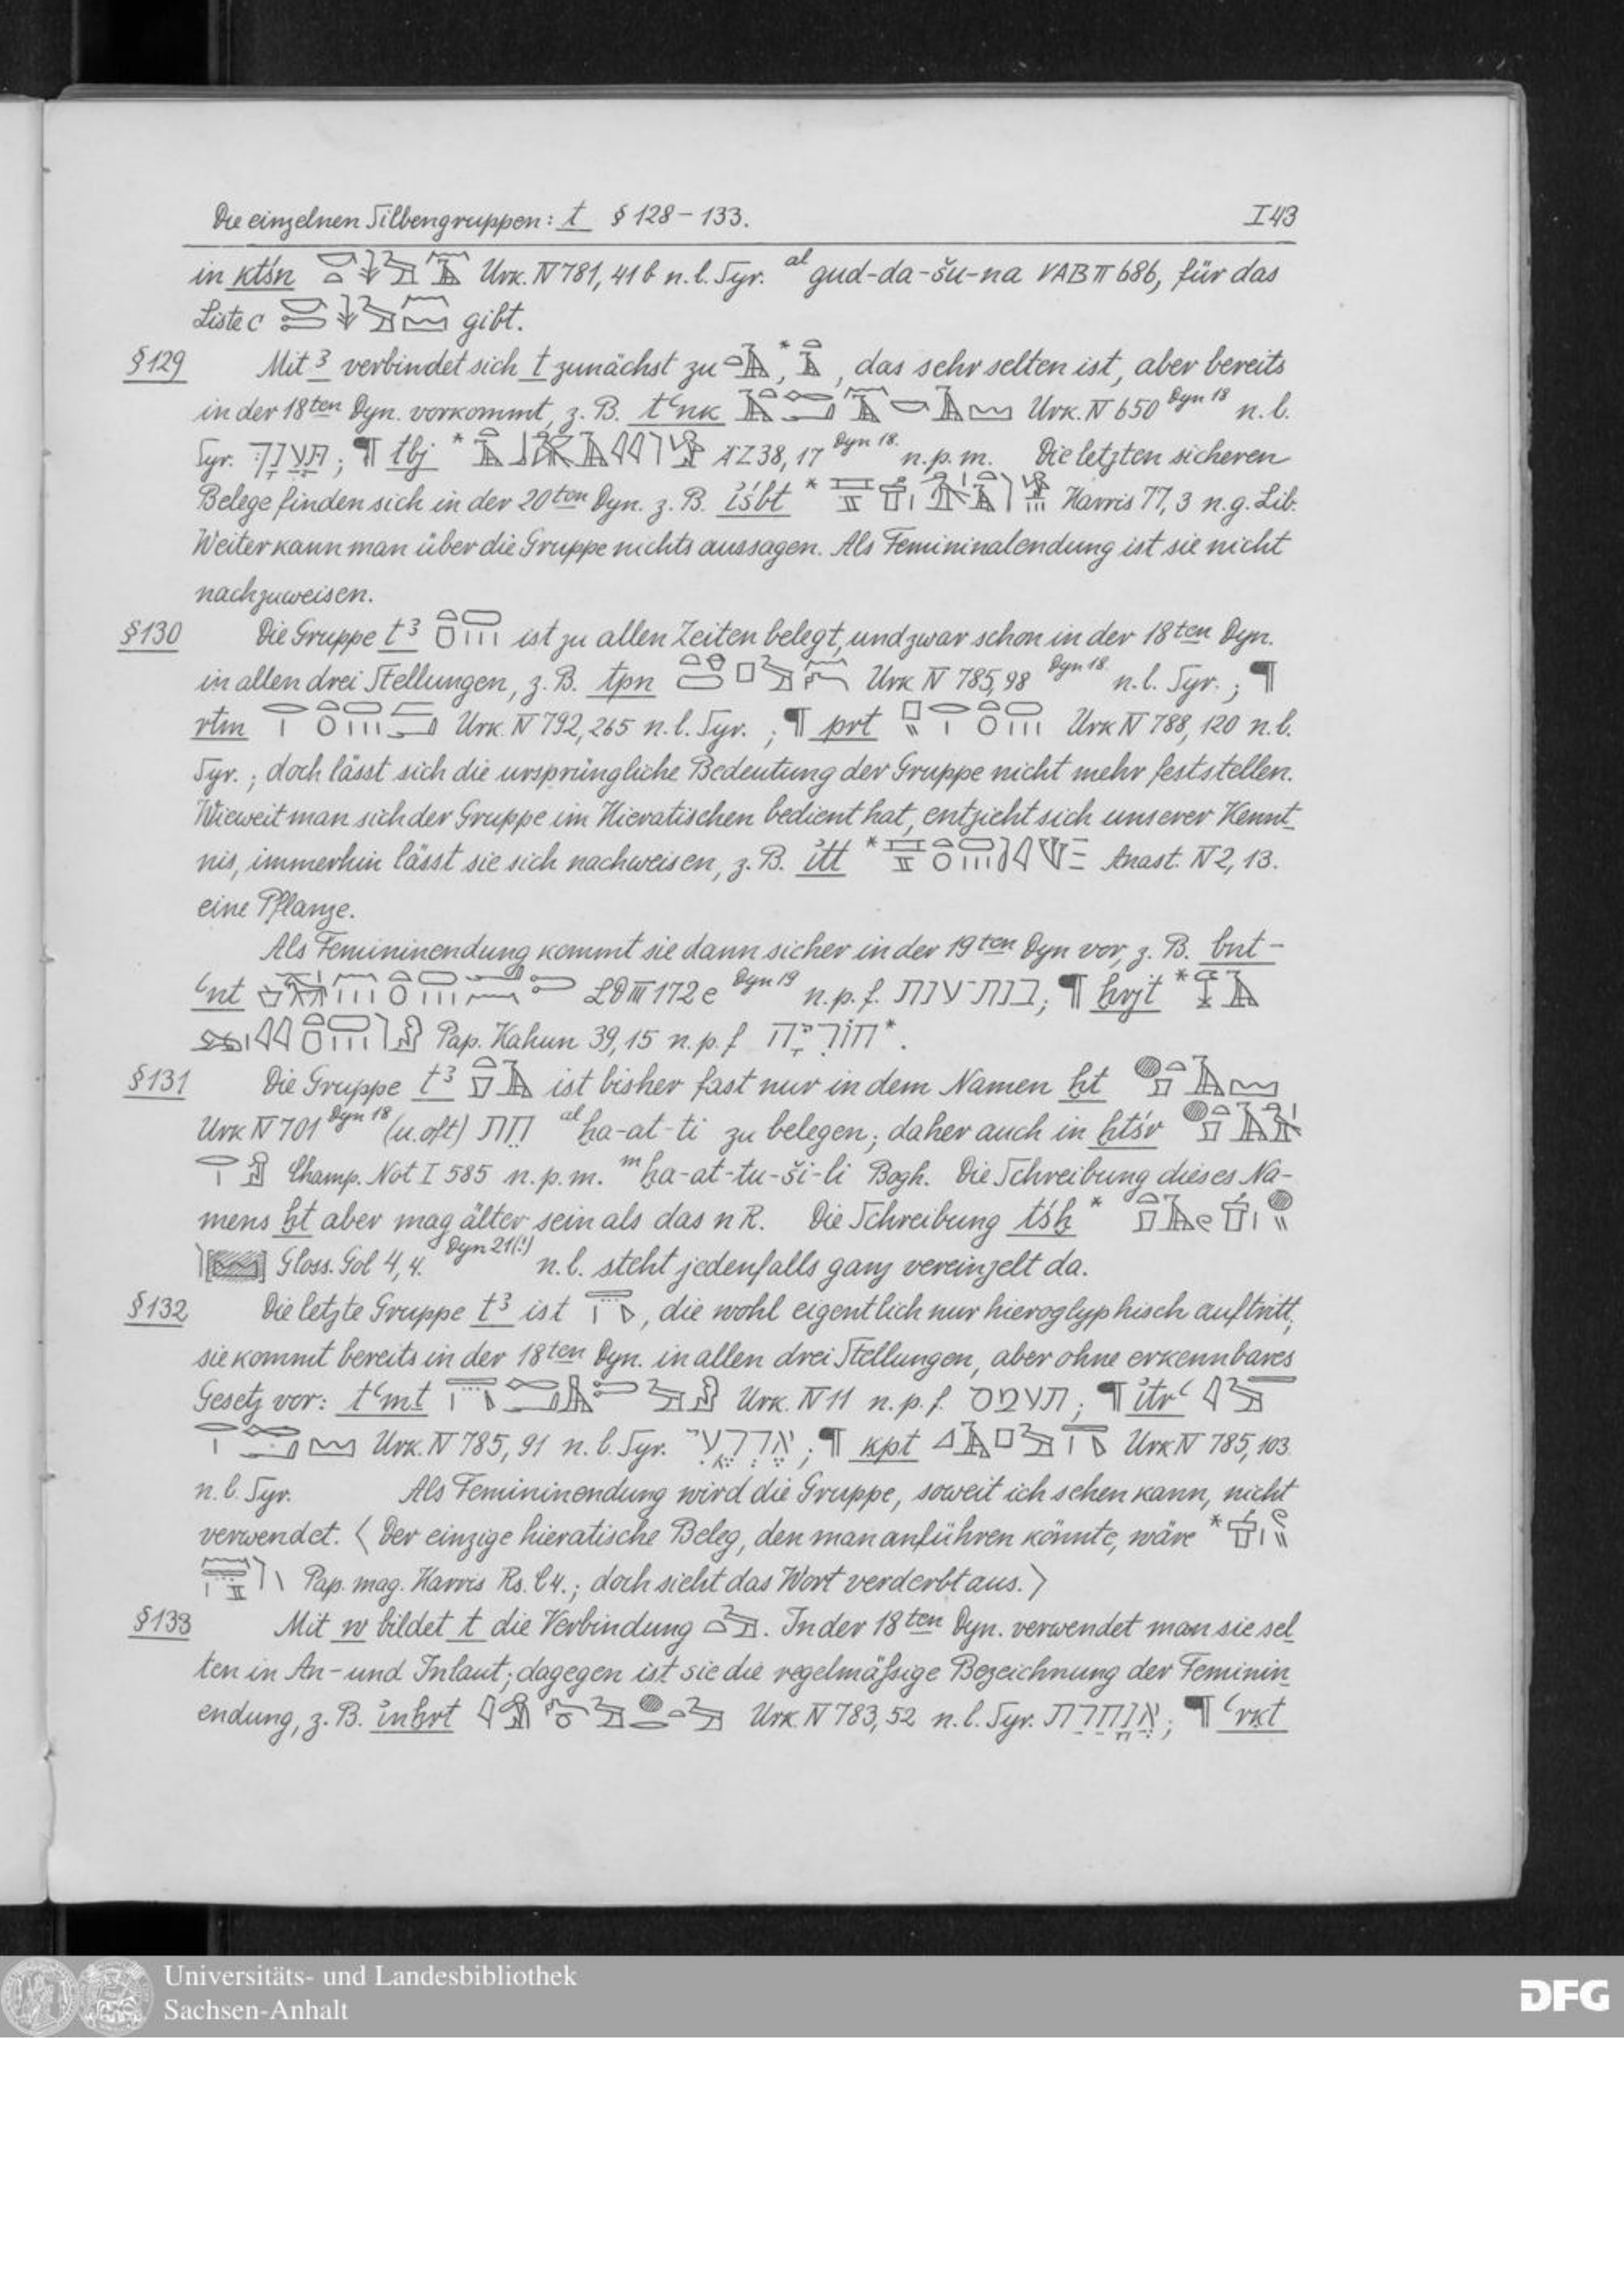 Die einzelnen Silbengruppen: t § 128 – 133. I 43
in ktśn Urk. IV 781, 41 b n. l. Syr. al gud-da-šu-na VAB II 686, für das
Liste C gibt.
§ 129 Mit ꜣ verbindet sich t zunächst zu , * , das sehr selten ist, aber bereits
in der 18ten Dyn. vorkommt, z. B. tꜥnk Urk. IV 650 Dyn 18 n. l.
Syr. תַּעְנָךְ ; ¶ tbj * ÄZ 38, 17 Dyn 18. n. p. m. Die letzten sicheren
Belege finden sich in der 20ten Dyn. z. B. iśbt * Harris 77, 3 n. g. Lib.
Weiter kann man über die Gruppe nichts aussagen. Als Femininalendung ist sie nicht
nachzuweisen.
§ 130 Die Gruppe tꜣ ist zu allen Zeiten belegt, und zwar schon in der 18ten Dyn.
in allen drei Stellungen, z. B. tpn Urk IV 785, 98 Dyn 18. n. l. Syr. ; ¶
rtm Urk. IV 792, 265 n. l. Syr. ; ¶ prt Urk IV 788, 120 n. l.
Syr. ; doch lässt sich die ursprüngliche Bedeutung der Gruppe nicht mehr feststellen.
Wieweit man sich der Gruppe im Hieratischen bedient hat, entzieht sich unserer Kennt-
nis, immerhin lässt sie sich nachweisen, z. B. itt * Anast. IV 2, 13.
eine Pflanze.
Als Femininendung kommt sie dann sicher in der 19ten Dyn vor, z. B. bnt-
ꜥnt LD III 172 e Dyn 19 n. p. f. בנת־ענת ; ¶ ḫrjt *
Pap. Kahun 39, 15 n. p. f *.
§ 131 Die Gruppe tꜣ ist bisher fast nur in dem Namen ḫt
Urk IV 701 Dyn 18 (u. oft) חת al ḫa-at-ti zu belegen; daher auch in ḫtśr
Champ. Not I 585 n. p. m. m ḫa-at-tu-ši-li Bogh. Die Schreibung dieses Na-
mens ḫt aber mag älter sein als das n R. Die Schreibung tśḫ *
Gloss. Gol 4, 4. Dyn 21(!) n. l. steht jedenfalls ganz vereinzelt da.
§ 132 Die letzte Gruppe tꜣ ist , die wohl eigentlich nur hieroglyphisch auftritt;
sie kommt bereits in der 18ten Dyn. in allen drei Stellungen, aber ohne erkennbares
Gesetz vor: tꜥmt Urk. IV 11 n. p. f. תעמס ; ¶ itrꜥ
Urk. IV 785, 91 n. l. Syr. אֶדְרֶעִי ; ¶ kpt Urk IV 785, 103
n. l. Syr. Als Femininendung wird die Gruppe, soweit ich sehen kann, nicht
verwendet. 〈 Der einzige hieratische Beleg, den man anführen könnte, wäre *
Pap. mag. Harris Rs. C 4. ; doch sieht das Wort verderbt aus. 〉
§ 133 Mit w bildet t die Verbindung . In der 18ten Dyn. verwendet man sie sel-
ten in An- und Inlaut; dagegen ist sie die regelmäßige Bezeichnung der Feminin-
endung, z. B. inḫrt Urk. IV 783, 52 n. l. Syr. אֲנָחֲרַת ; ¶ ꜥrkt
Universitäts- und Landesbibliothek
Sachsen-Anhalt
DFG